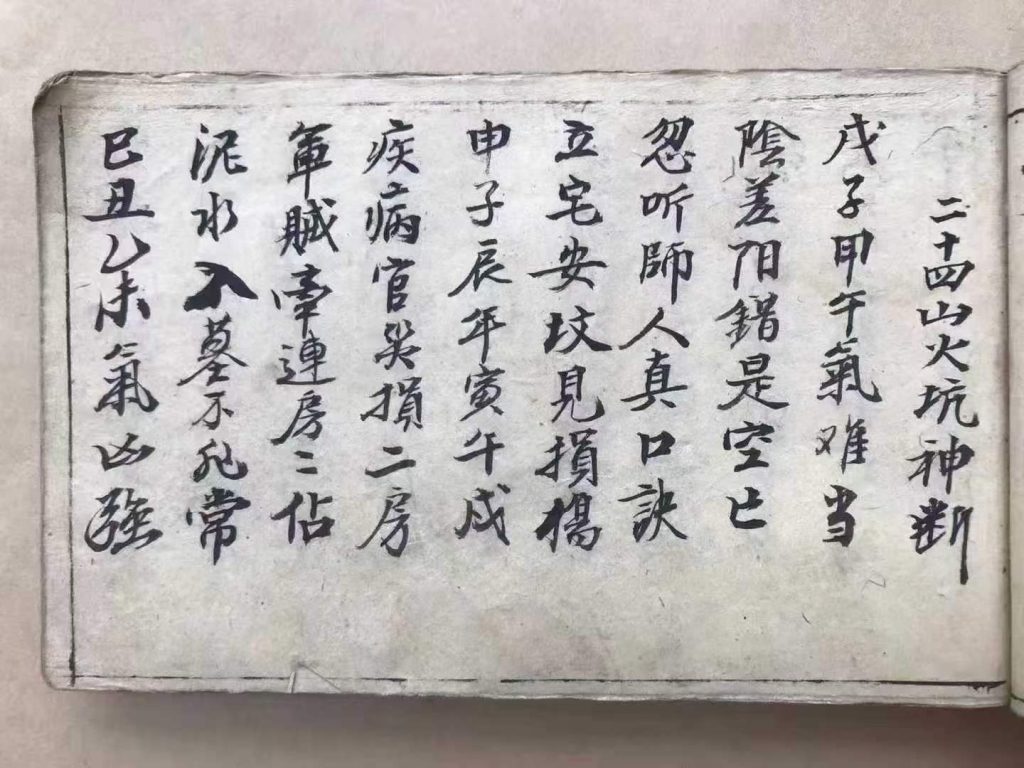 二十四山火坑神断
戊子甲午氣难当
陰差阳錯是空亡
忽听師人真口訣
立宅安坟見損楊
申子辰年寅午戌
疾病官災損二房
軍賊牽連房二佔
泥水入墓不非常
巳丑乙未氣凶強